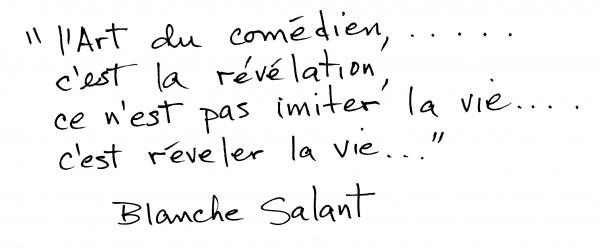 "l'Art du comédien, .....
c'est la révélation,
ce n'est pas imiter la vie....
c'est réveler la vie..."
Blanche Salant